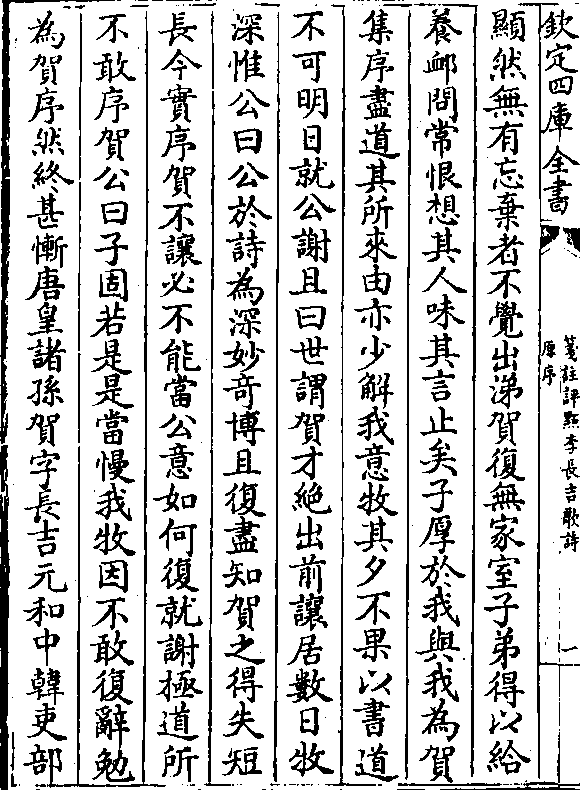 欽定四庫全書
箋註評點李長吉歌詩
原序
一
顯然無有忘棄者不覺出涕賀復無家室子弟得以給
養衈問常恨想其人味其言止矣子厚於我與我為賀
集序盡道其所來由亦少解我意牧其夕不果以書道
不可明日就公謝且曰世謂賀才絶出前讓居數日牧
深惟公曰公於詩為深妙竒博且復盡知賀之得失短
長今實序賀不讓必不能當公意如何復就謝極道所
不敢序賀公曰子固若是是當慢我牧因不敢復辭勉
為賀序然終甚慚唐皇諸孫賀字長吉元和中韓吏部